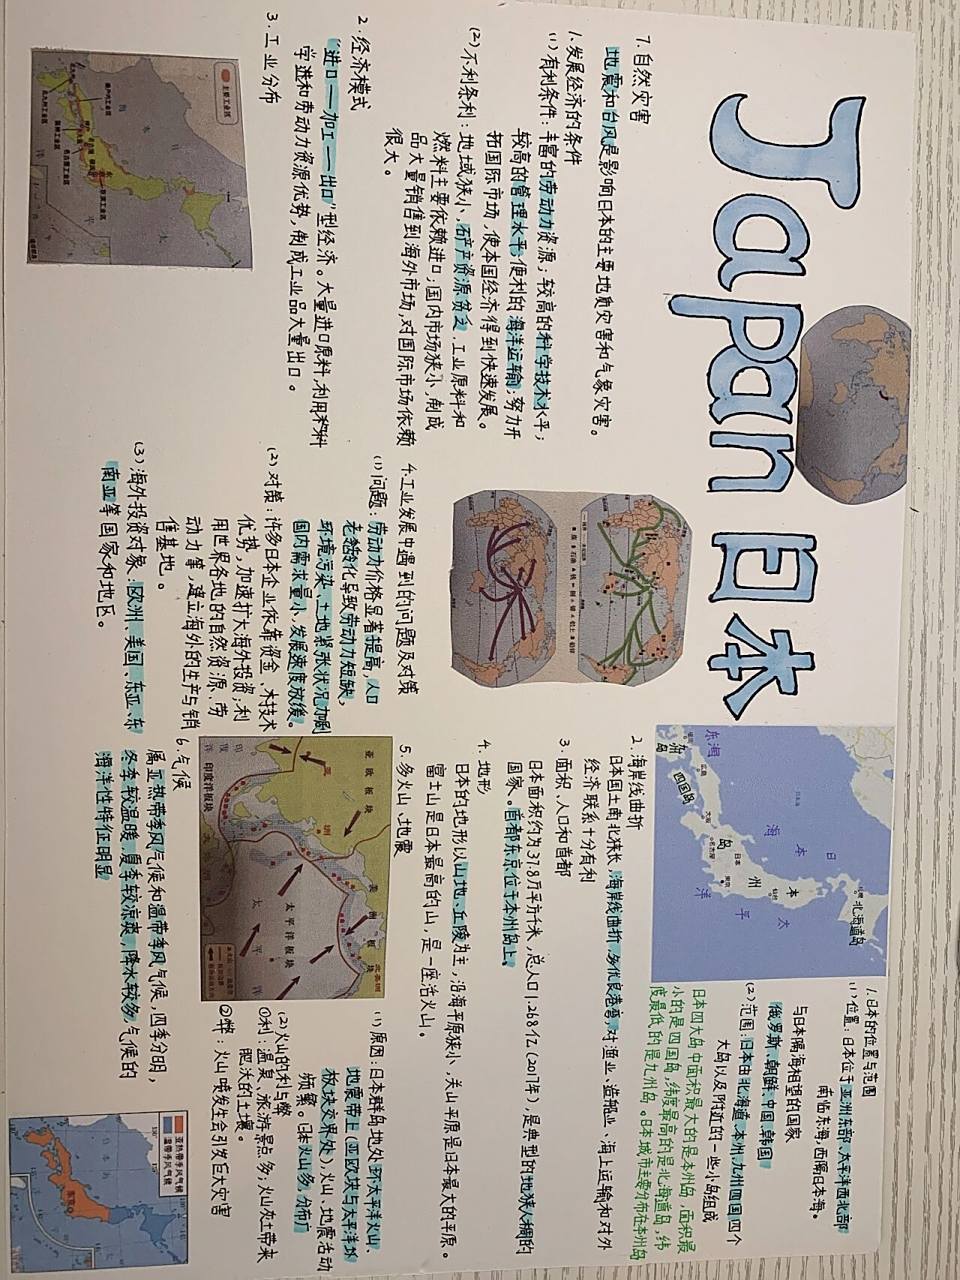 Japan 日本
1.日本的位置与范围
(1)位置:日本位于亚洲东部、太平洋西北部
南临东海,西隔日本海。
与日本隔海相望的国家
俄罗斯、朝鲜、中国、韩国
(2)范围:日本由北海道、本州、九州四国四个
大岛以及附近的一些小岛组成
日本四大岛中面积最大的是本州岛,面积最
小的是四国岛,纬度最高的是北海道岛,纬
度最低的是九州岛。日本城市主要分布在本州岛
2.海岸线曲折
日本国土南北狭长,海岸线曲折,多优良港湾,对渔业、造船业、海上运输和对外
经济联系十分有利
3.面积、人口和首都
日本面积约为37.8万平方千米,总人口1.268亿(2017年),是典型的地狭人稠的
国家。首都东京位于本州岛上。
4.地形
日本的地形以山地、丘陵为主,沿海平原狭小,关山平原是日本最大的平原。
富士山是日本最高的山,是一座活火山。
5.多火山、地震
(1)原因:日本群岛地处环太平洋火山、
地震带上(亚欧板块与太平洋板
板块交界处),火山、地震活动
频繁。(日本火山多,分布广
(2)火山的利与弊
①利:温泉、旅游景点多;火山灰土带来
肥沃的土壤。
②弊:火山喷发生会引发巨大灾害
6.气候
属亚热带季风气候和温带季风气候,四季分明,
冬季较温暖,夏季较凉爽,降水较多,气候的
海洋性特征明显
7.自然灾害
地震和台风是影响日本的主要地质灾害和气象灾害。
1.发展经济的条件
(1)有利条件:丰富的劳动力资源;较高的科学技术水平;
较高的管理水平;便利的海洋运输;努力开
拓国际市场,使本国经济得到快速发展。
(2)不利条利:地域狭小,石产资源贫乏,工业原料和
燃料主要依赖进口;国内市场狭小,制成
品大量销售到海外市场,对国际市场依赖
很大。
2.经济模式
“进口——加工——出口”型经济。大量进口原料,利用科
学进和劳动力资源优势,制成工业品大量出口。
3.工业分布
4.工业发展中遇到的问题及对策
(1)问题:劳动力价格显著提高,人口
老龄化导致劳动力短缺,
环境污染、土地紧张状况加剧
国内需求量小,发展速度放缓。
(2)对策:许多日本企业依靠资金、技术
优势,加速扩大海外投资;利
用世界各地的自然资源、劳
动力等,建立海外的生产与销
售基地。
(3)海外投资对象:欧洲、美国、东亚、东
南亚等国家和地区。
北海道岛
本州岛
四国岛
九州岛
日本海
太平洋
东海
亚欧板块
太平洋板块
美洲板块
印度洋板块
太平洋
主要工业区
亚热带季风气候
温带季风气候